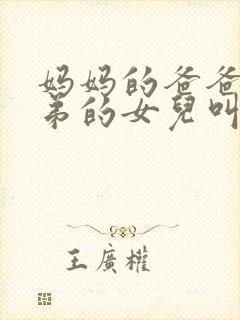 妈妈的爸爸
弟的女兒叫
王廣權